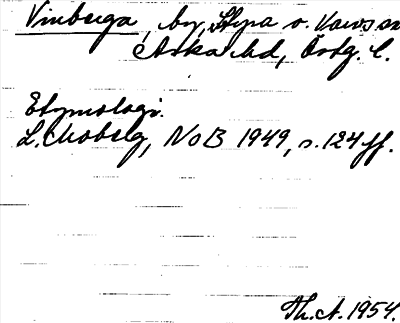 Vinberga, by, Styra o. Varvs snr
Aska hd, Östg. l.
Etymologi.
L. Moberg, NoB 1949, s. 124 ff.
Th. A. 1954.